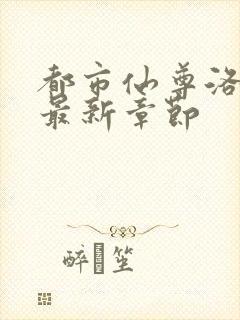 都市仙尊洛
最新章节
醉 笙